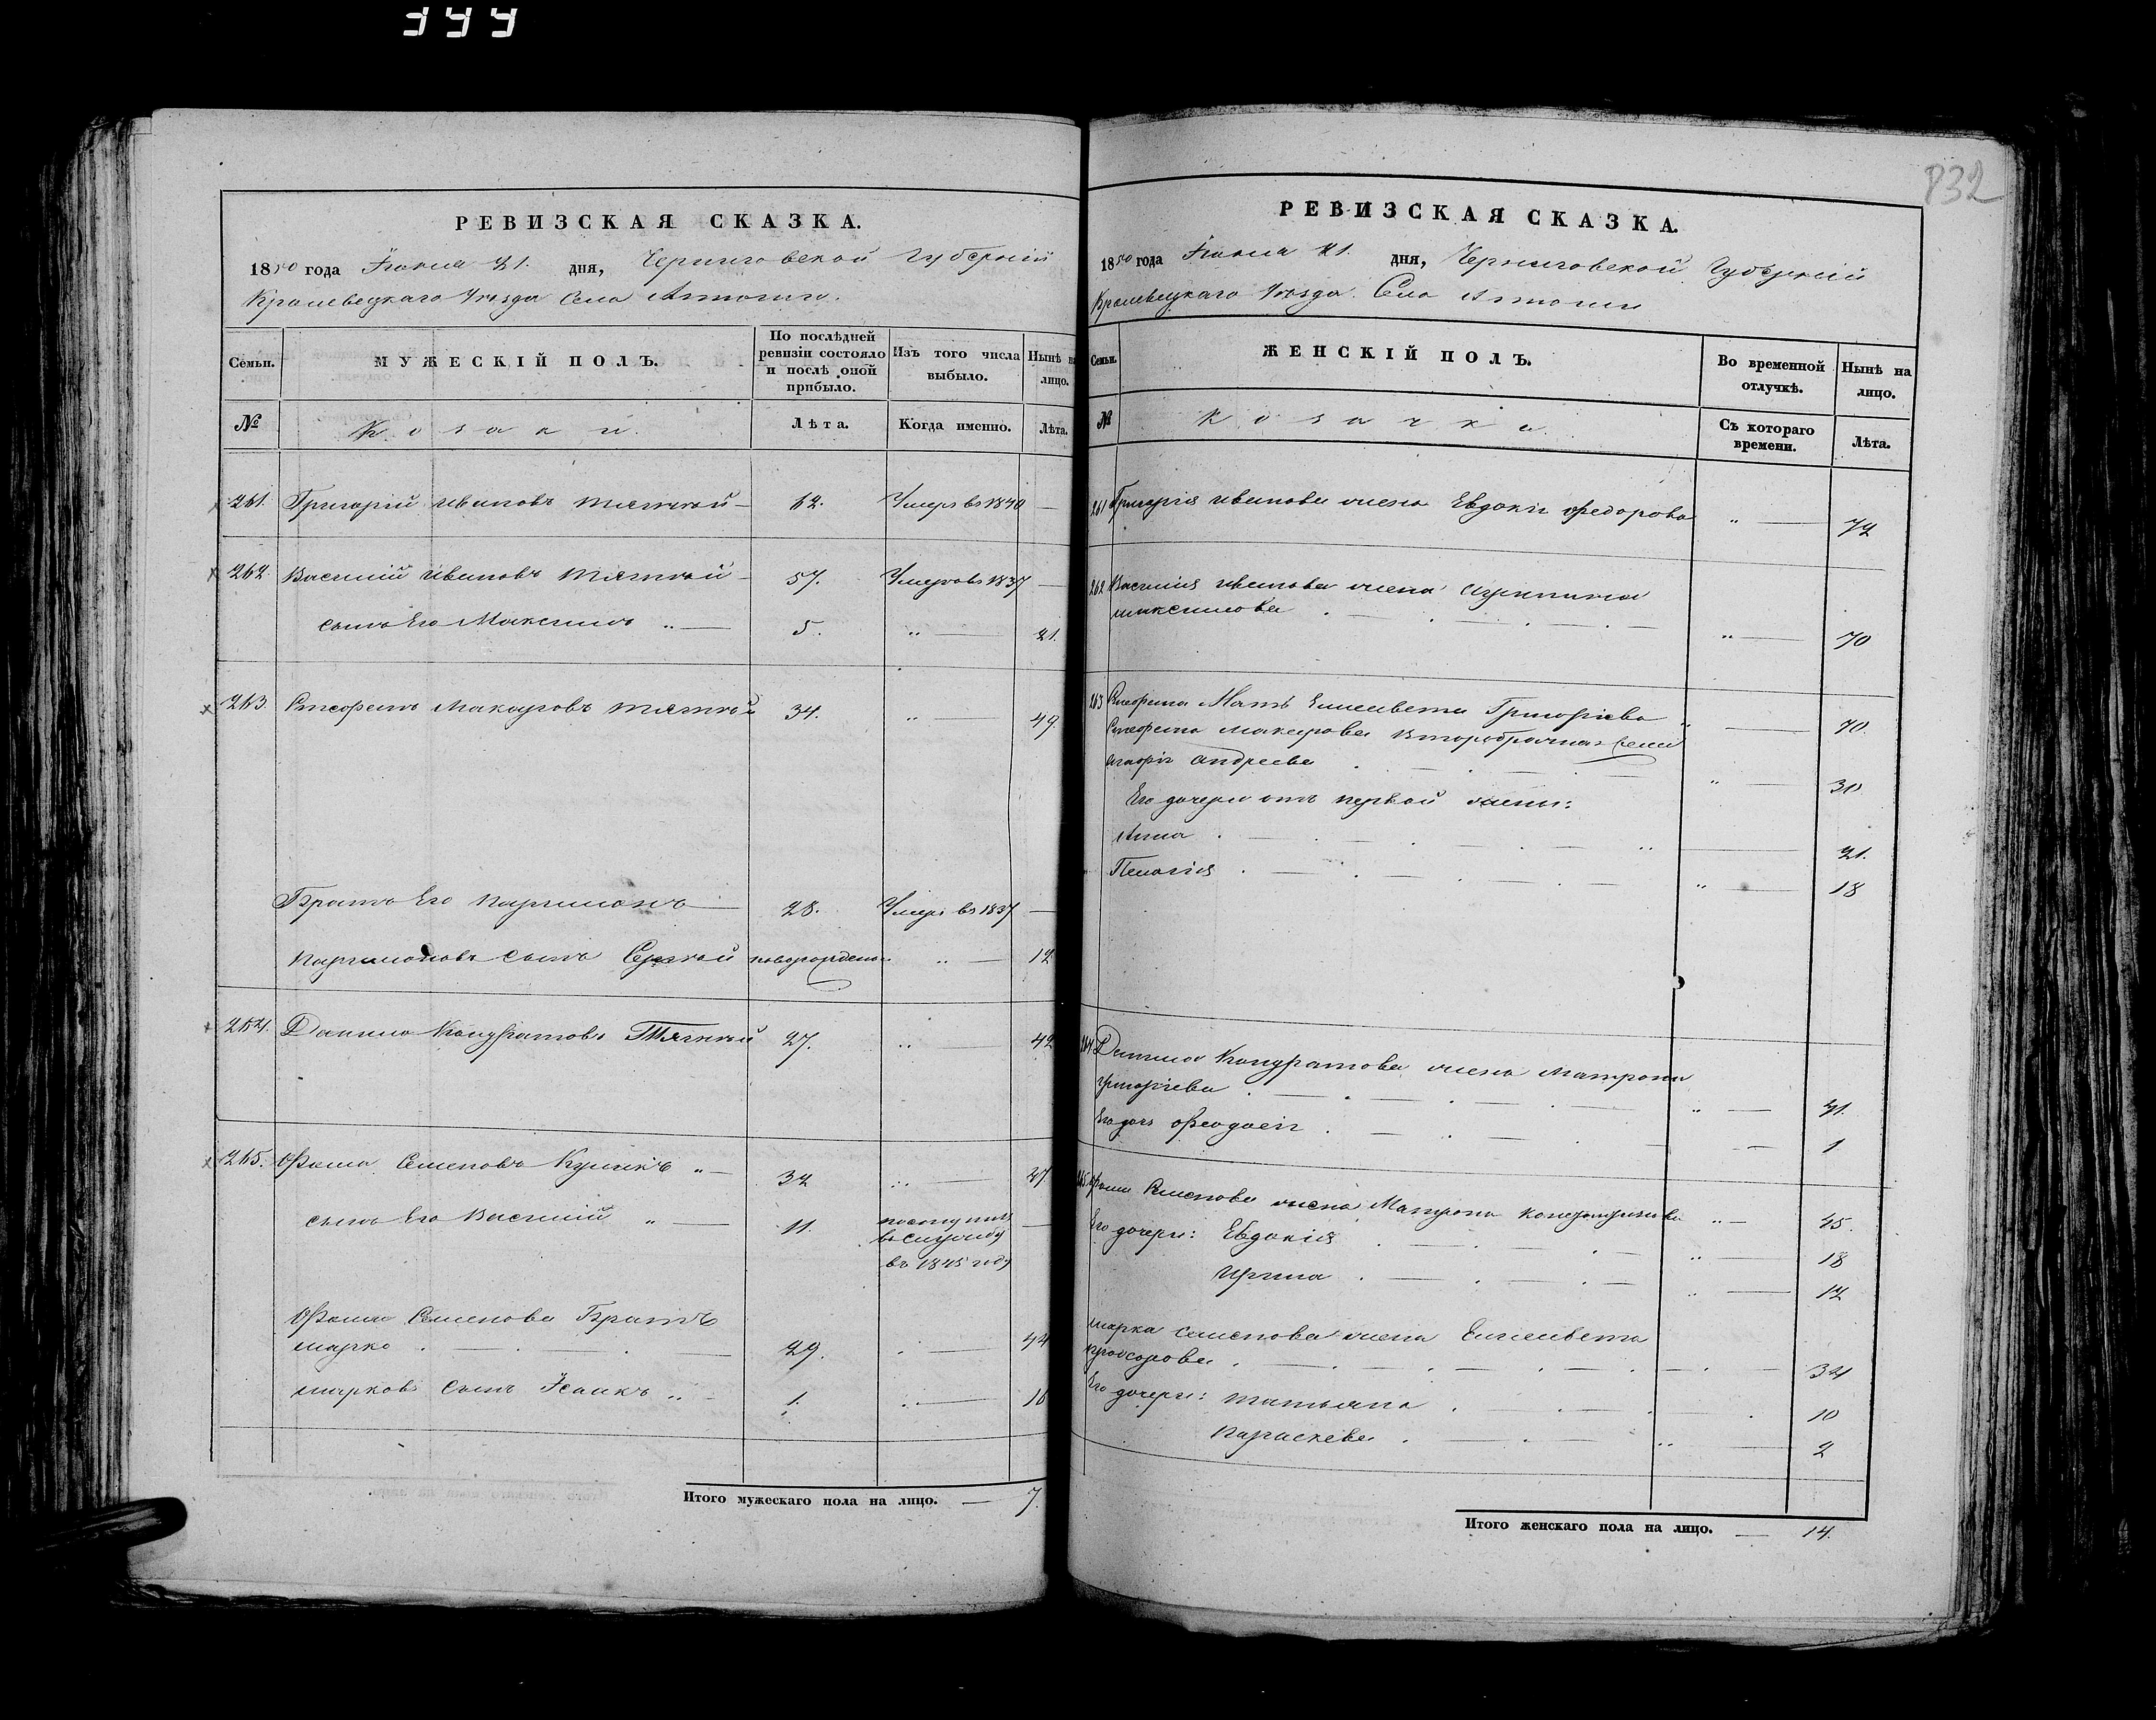 344
832
РЕВИЗСКАЯ СКАЗКА.
1850 года Іюния 21. дня, Черниговской Губерніи
Кролевецкаго Уезда Села
МУЖЕСКІЙ ПОЛЪ.
Семьи.
По послѣдней ревизіи состояло и послѣ оной прибыло.
Изъ того числа выбыло.
Нынѣ на лицо.
№ Козаки. Лѣта. Когда именно. Лѣта.
261. Григорій Ивановъ Тягкій 62. Умеръ въ 1840 —
262. Василій Ивановъ Тягкій 57. Умеръ въ 1837 —
сынъ Его Максимъ 5. " — 21.
263. Макаровъ Тягкій 34. " — 49.
Братъ Его Парѳимонъ 28. Умеръ въ 1837 —
сынъ Сергѣй новорожденъ " — 12
264. Данило Кондратовъ Тягкій 27. " — 42
265. Ѳома Семеновъ 32 " — 47
сынъ Его Василій " — 11. поступилъ —
въ
въ 1845 году
Ѳомы Семенова Братъ
Марко 29. — 44
Марковъ сынъ Исаакъ 1. — 16
Итого мужескаго пола на лицо. — 7.
РЕВИЗСКАЯ СКАЗКА.
1850 года Іюния 21. дня, Черниговской Губерніи
Кролевецкаго Уезда. Села
Семьи.
ЖЕНСКІЙ ПОЛЪ.
Во временной отлучкѣ.
Нынѣ на лицо.
№ Козачки. Съ котораго времени. Лѣта.
261 Григорія Иванова жена Евдокія Федорова " — 72
262 Василія Иванова жена
Максимова " — 70
263 Мать Елисавета Григоріева " — 70.
Макарова второбрачная жена
Андреева " — 30
Его дочери отъ первой жены:
Анна " — 21.
Пелагія " — 18
264 Данила Кондратова жена Матрона
Григоріева " — 41.
Его дочь Ѳеодосія — 1
265. Ѳомы Семенова жена Матрона " — 45.
Его дочери: Евдокія " — 18
Ирина " — 12
Марка Семенова жена Елисавета
— 34
Его дочери: Татьяна 10
Параскева " — 2
Итого женскаго пола на лицо. — 14.